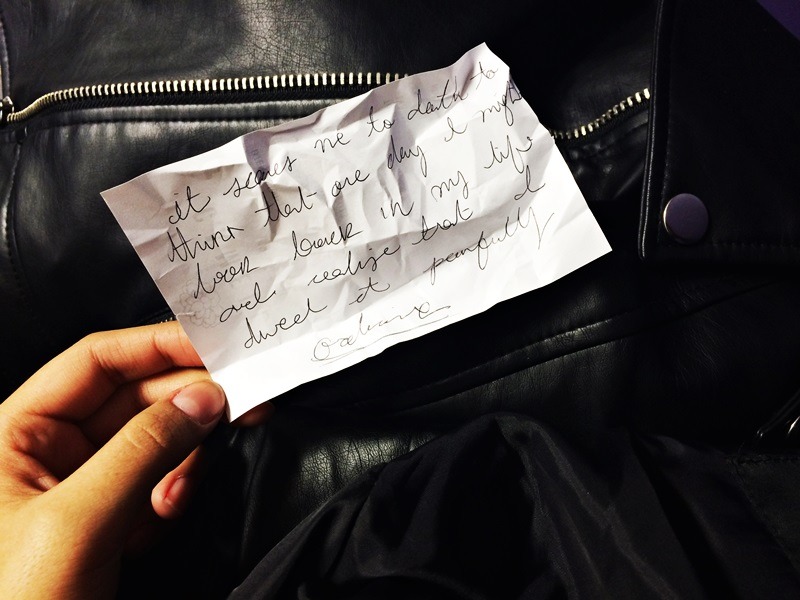 it scares me to death to
think that one day I might
look back in my life
and realize that I
lived it painfully
Ordinary